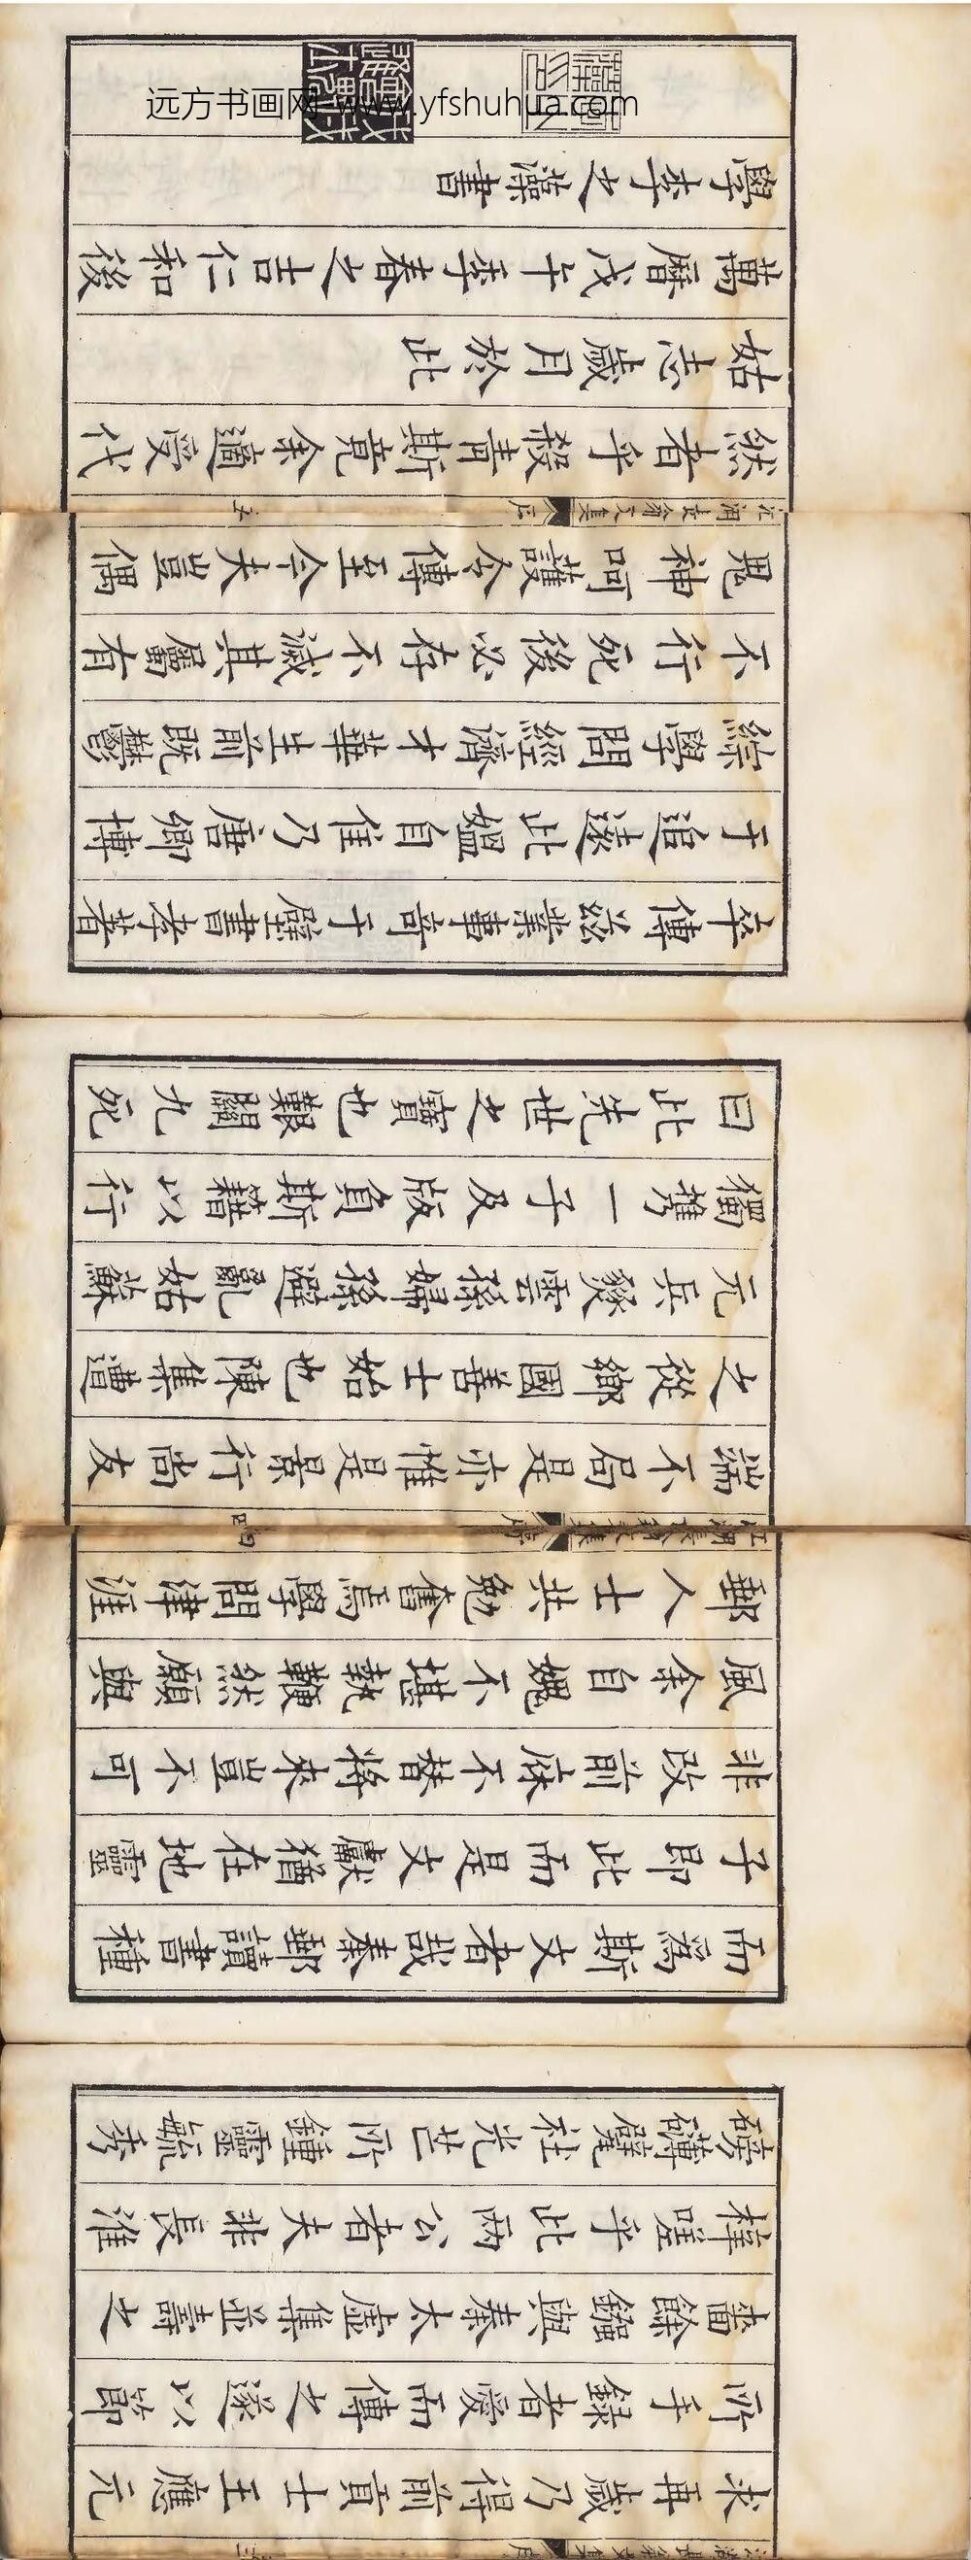 江湖長翁文集 序 三
求再歲乃得前貢士王應元
所手錄者愛而傳之遂以節
嗇餘鏹與秦太虛集並壽之
梓嗟乎此兩公者夫非長淮
磅礴甓社光芒所鍾靈毓秀
而爲斯文者哉秦郵讀書種
子即此而是文獻猶在地靈
非改前庥不替將來豈不可
風余自媿不堪執鞭然願與
郵人士共勉奮焉學問津涯
江湖長翁文集 序 四
端不局是亦惟是景行尚友
之從鄉國善士始也陳集遭
元兵燹雲孫婦孫避亂姑蘇
獨攜一子及版負斯籍以行
曰此先世之寶也艱關九死
卒傳茲業事奇于壁書孝著
于追遠比媼自佳乃唐卿博
綜學問經濟才華生前既鬱
不行死後必存不滅其屬有
鬼神呵護令傳至今夫豈偶
江湖長翁文集 序 五
然者乎殺青斯竟余適受代
姑志歲月於此
萬曆戊午季春之吉仁和後
學李之藻書
远方书画网 www.yfshuhua.com